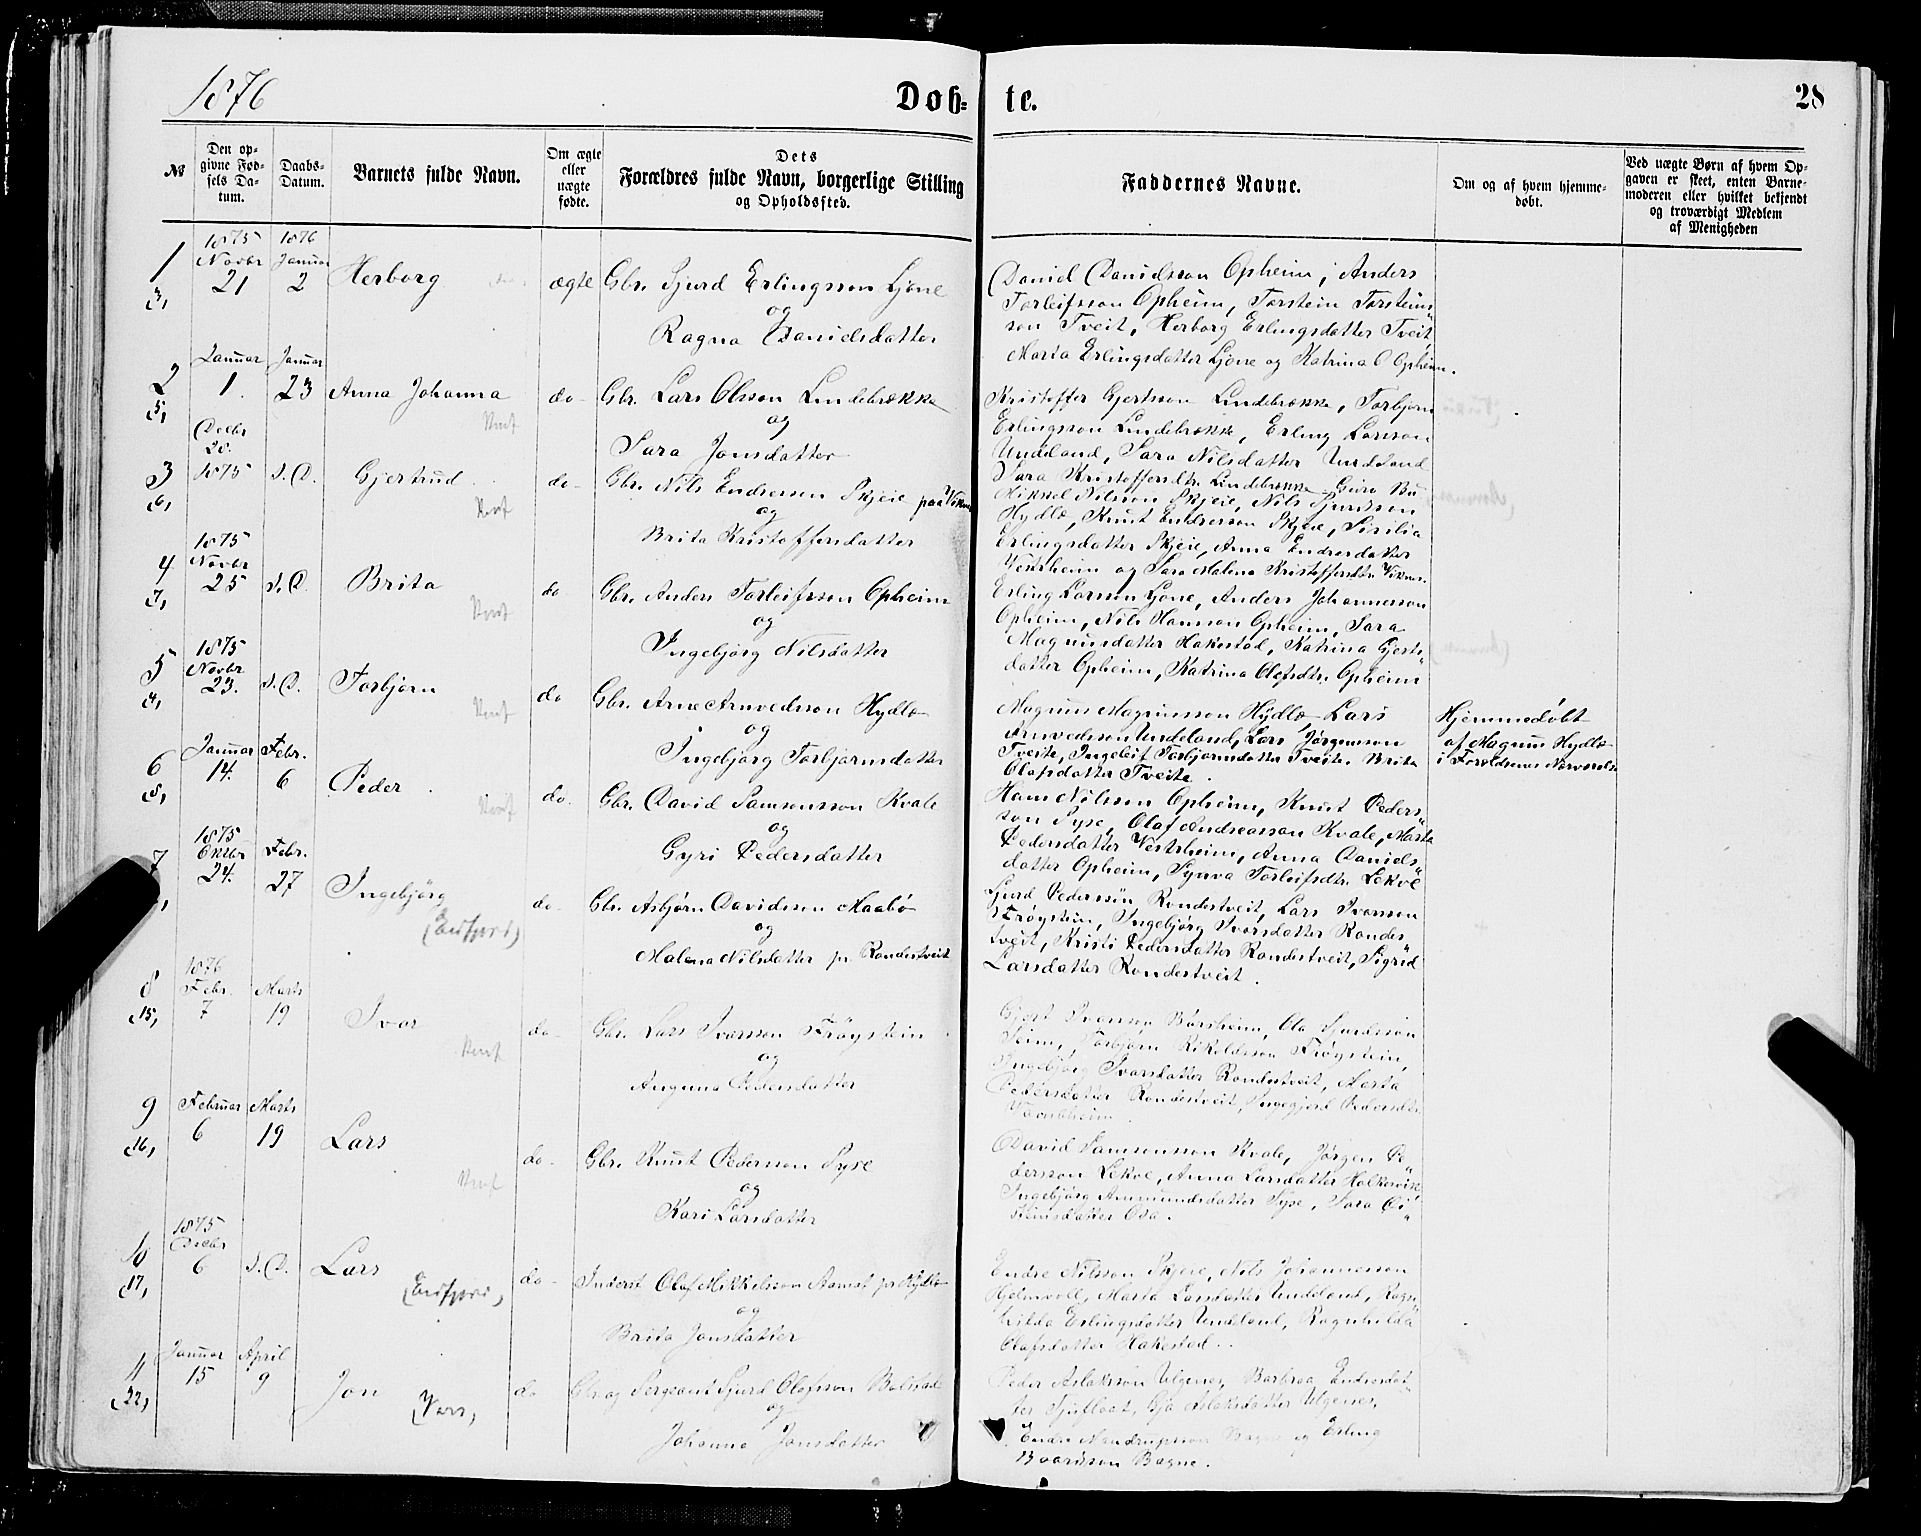 1876
Døb-
te.
28
№
Den op-
givne Fød-
sels Da-
tum.
Daabs-
Datum.
Barnets fulde Navn.
Om ægte
eller
uægte
fødte.
Dets
Forældres fulde Navn, borgerlige Stilling
og Opholdssted.
Faddernes Navne.
Om og af hvem hjemme-
døbt.
Ved uægte Børn af hvem Op-
gaven er skeet, enten Barne-
moderen eller hvilket bekjendt
og troværdigt Medlem
af Menigheden
1
3,
1875
Novbr
21
1876
Januar
2
Herborg
ægte
Gbr. Sjurd Erlingsson Ljone
og
Ragna Danielsdatter
Daniel Danielsson Opheim, Anders
Torleifsson Opheim, Torstein Torsteins-
son Tveit, Herborg Erlingsdatter Tveit,
Marta Erlingsdatter Ljone og Katrina O Opheim.
2
5,
Januar
1.
Januar
23
Anna Johanna
do
Gbr. Lars Olsson Lindebrække
og
Sara Jonsdatter
Kristoffer Gjertsson Lindebrække, Torbjørn
Erlingsson Lindebrække, Erling Larsson
Undeland, Sara Nilsdatter Undeland
Sara Kristoffersdtr. Lindebrække Guro Bu
3
6,
Decbr
28.
1875
s. D.
Gjertrud
do
Gbr. Nils Endresson Skjeie paa Viknes
og
Brita Kristoffersdatter
Mikkel Nilsson Skjeie, Nils Sjurdsson
Hydle, Knut Endresson Skjeie, Sirilia
Erlingsdatter Skjeie, Anna Endresdatter
Vestrheim og Sara Malena Kristoffersdtr. Viknes.
4
7,
1875
Novbr
25
s. D.
Brita
do
Gbr. Anders Torleifsson Opheim
og
Ingebjørg Nilsdatter
Erling Larsson Ljone, Anders Johannesson
Opheim, Nils Hansson Opheim, Sara
Magnusdatter Hakestad, Katrina Gjerts-
datter Opheim, Katrina Olafsdtr. Opheim
5
4,
1875
Novbr
23.
s. D.
Torbjørn
do
Gbr. Arne Arnvedsson Hydle
og
Ingebjørg Torbjørnsdatter
Magnus Magnusson Hydle, Lars
Arnvedsson Undeland, Lars Jørgensson
Tveite, Ingeleif Torbjørnsdatter Tveite. Brita
Olafsdatter Tveite.
Hjemmedøbt
af Magnus Hydle
i Forældrenes Nærværelse
6
8,
Januar
14.
Febr.
6
Peder
do.
Gbr. David Samsonsson Kvale
og
Gyri Pedersdatter
Hans Nilsson Opheim, Knut Peders-
son Syse, Olaf Andreasson Kvale, Marta
Pedersdatter Vestrheim, Anna Daniels-
datter Opheim, Synva Torleifsdtr. Lekve
7
1875
Oktbr
24.
Febr.
27
Ingebjørg
(Eidfjord)
do
Gbr. Asbjørn Davidsson Maabø
og
Malena Nilsdatter pr Rondestveit
Sjurd Pedersson Rondestveit, Lars Ivarsson
Frøystein, Ingebjørg Ivarsdatter Rondes-
tveit, Kristi Pedersdatter Rondestveit, Sigrid
Larsdatter Rondestveit.
8
15,
1876
Febr.
7
Marts
19
Ivar
do
Gbr. Lars Ivarsson Frøystein
og
Angunna Pedersdatter
Gjert Ivarsson Børsheim, Ola Sjurdsson
Seim, Torbjørn Rikoldsson Frøystein,
Ingebjørg Ivarsdatter Rondestveit, Marta
Pedersdatter Rondestveit, Pedersdtr.
9
16,
Februar
6
Marts
19
Lars
do.
Gbr. Knut Pedersson Syse
og
Kari Larsdatter
David Samsonsson Kvale, Jørgen Pe-
dersson Lekve, Anna Larsdatter Holkesvik,
Ingebjørg Ammundsdatter Syse, Sara Ei-
steinsdatter Osa.
10
17,
1875
Decbr
6
s. D.
Lars
(Eidfjord)
do
Inderst Olaf Mikkelsson Aamot pr Hydle
og
Brita Jonsdatter
Endre Nilsson Skjeie, Nils Johannesson
Hjelmvoll, Marta Larsdatter Undeland, Ragn-
hilda Erlingsdatter Undeland, Ragnhilda
Olafsdatter Hakestad.
11
22,
Januar
15
April
9
Jon
(Vors)
do
Gbr. og Sergeant Sjurd Olafsson Bolstad
og
Johanna Jonsdatter
Peder Aslaksson Ulgenes, Barbroa Endresdat-
ter Sjufloat, Aslaksdatter Ulgenes,
Endre Bagne og Erling
Baardsson Bagne.